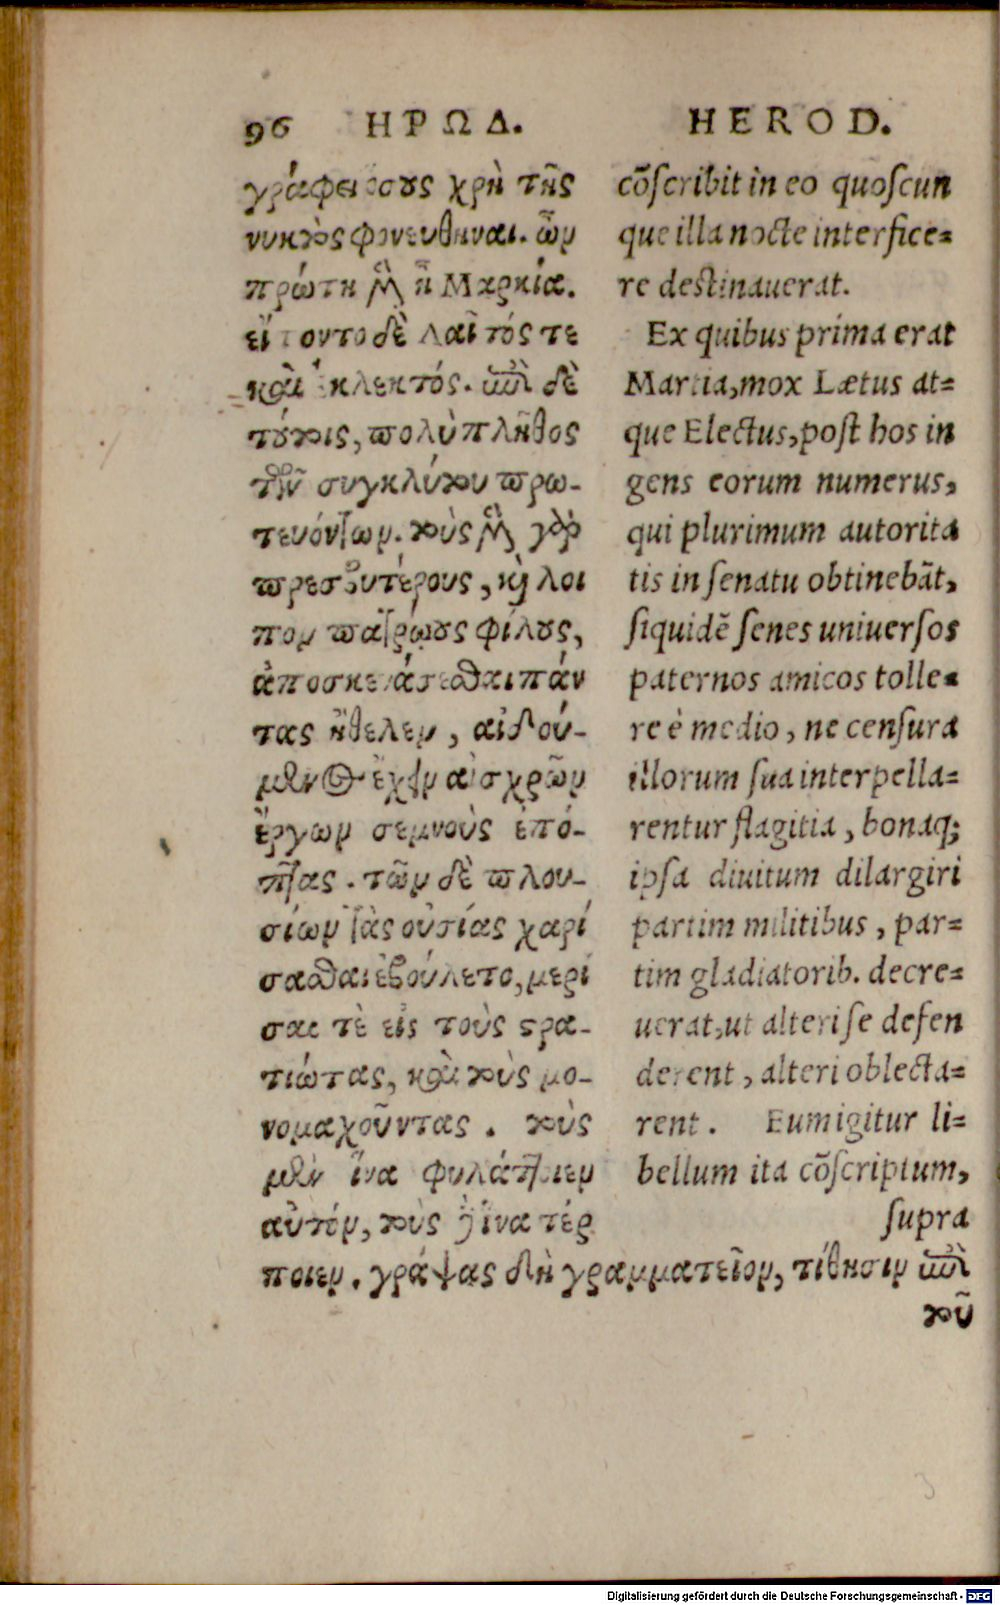 96 ΗΡΩΔ.
γράφει ὅσους χρὴ τῆς
νυκτὸς φονευθῆναι. ὧν
πρώτη μὲν ἦ Μαρκία.
εἵποντο δὲ Λαῖτός τε
καὶ Ἐκλεκτός. ἐπὶ δὲ
τούτοις, πολὺ πλῆθος
τῶν συγκλήτου πρω-
τευόντων. τοὺς μὲν γὰρ
πρεσβυτέρους, καὶ λοι
πον πατρῴους φίλους,
ἀποσκευάσασθαι πάν
τας ἤθελεν, αἰδού-
μενος ἔχειν αἰσχρῶν
ἔργων σεμνοὺς ἐπό-
πτας. τῶν δὲ πλου-
σίων τὰς οὐσίας χαρί
σασθαι ἐβούλετο, μερί
σαι τὲ εἰς τοὺς στρα-
τιώτας, καὶ τοὺς μο-
νομαχοῦντας. τοὺς
μὲν ἵνα φυλάττοιεν
αὐτόν, τοὺς δὲ ἵνα τέρ
ποιεν. γράψας δὴ γραμματεῖον, τίθησιν ἐπὶ
τοῦ
HEROD.
cõſcribit in eo quoſcun
que illa nocte interfice=
re deſtinauerat.
Ex quibus prima erat
Martia, mox Lætus at=
que Electus, poſt hos in
gens eorum numerus,
qui plurimum autorita
tis in ſenatu obtinebãt,
ſiquidẽ ſenes uniuerſos
paternos amicos tolle=
re è medio, ne cenſura
illorum ſua interpella=
rentur flagitia, bonaq;
ipſa diuitum dilargiri
partim militibus, par=
tim gladiatorib. decre=
uerat, ut alteri ſe defen
derent, alteri oblecta=
rent. Eum igitur li=
bellum ita cõſcriptum,
ſupra
Digitalisierung gefördert durch die Deutsche Forschungsgemeinschaft - DFG